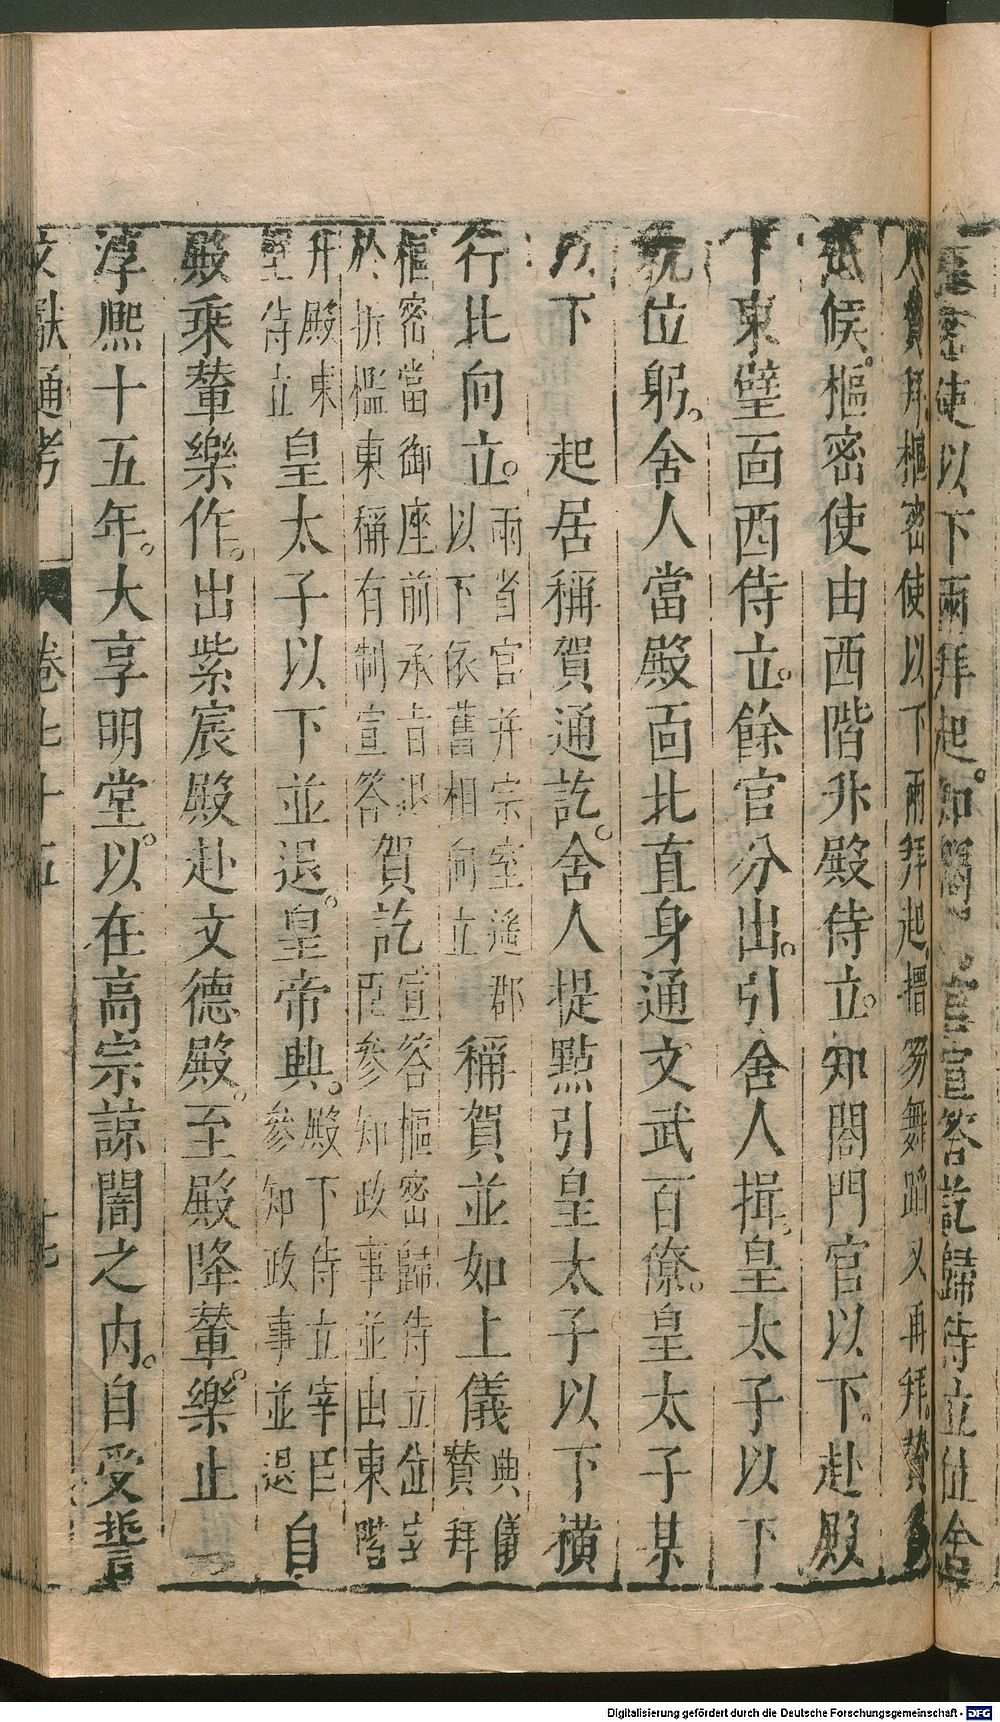 使以下兩拜起。知閤
宣答訖歸侍立
人賛拜樞密使以下兩拜起搢笏舞蹈又再拜賛
祗候。樞密使由西階升殿侍立。知閤門官以下。赴殿
下東壁面西侍立。餘官分出。引舍人揖。皇太子以下
位躬。舍人當殿面北直身通文武百僚。皇太子某
以下 起居稱賀通訖。舍人提點引皇太子以下橫
行北向立。兩省官并宗室遙郡以下依舊相向立稱賀並如上儀典儀賛拜
樞密當御座前承旨退於折檻東稱有制宣答賀訖宣答樞密歸侍立並宰臣參知政事並由東階
升殿東壁侍立皇太子以下並退。皇帝興。殿下侍立宰臣參知政事並退自
殿乘輦樂作。出紫宸殿赴文德殿。至殿降輦。樂止
淳熙十五年。大享明堂。以在高宗諒闇之內。自受誓
文獻通考 卷七十五